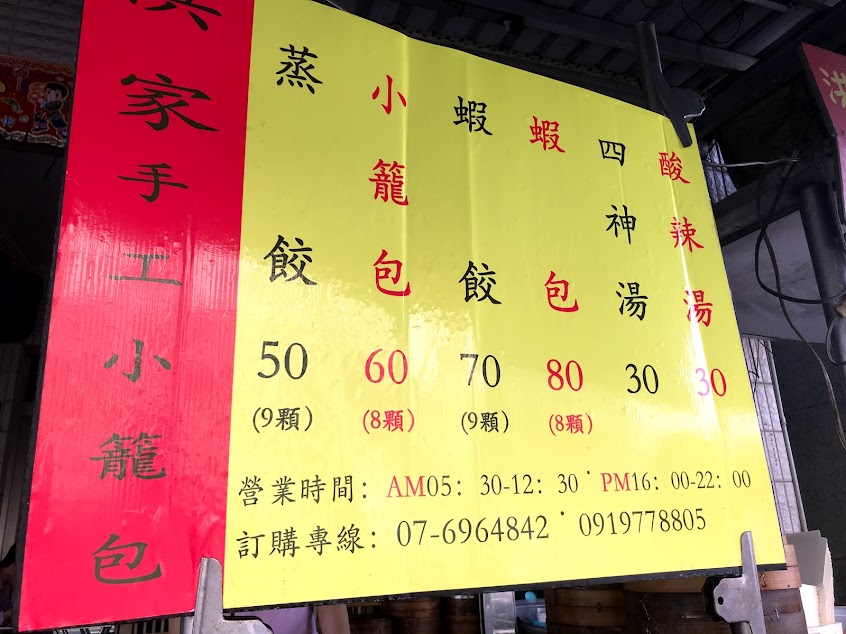 家手工小籠包
蒸餃 50 (9顆)
小籠包 60 (8顆)
蝦餃 70 (9顆)
蝦包 80 (8顆)
四神湯 30
酸辣湯 30
營業時間：AM05：30-12：30˙PM16：00-22：00
訂購專線：07-6964842˙0919778805
洪